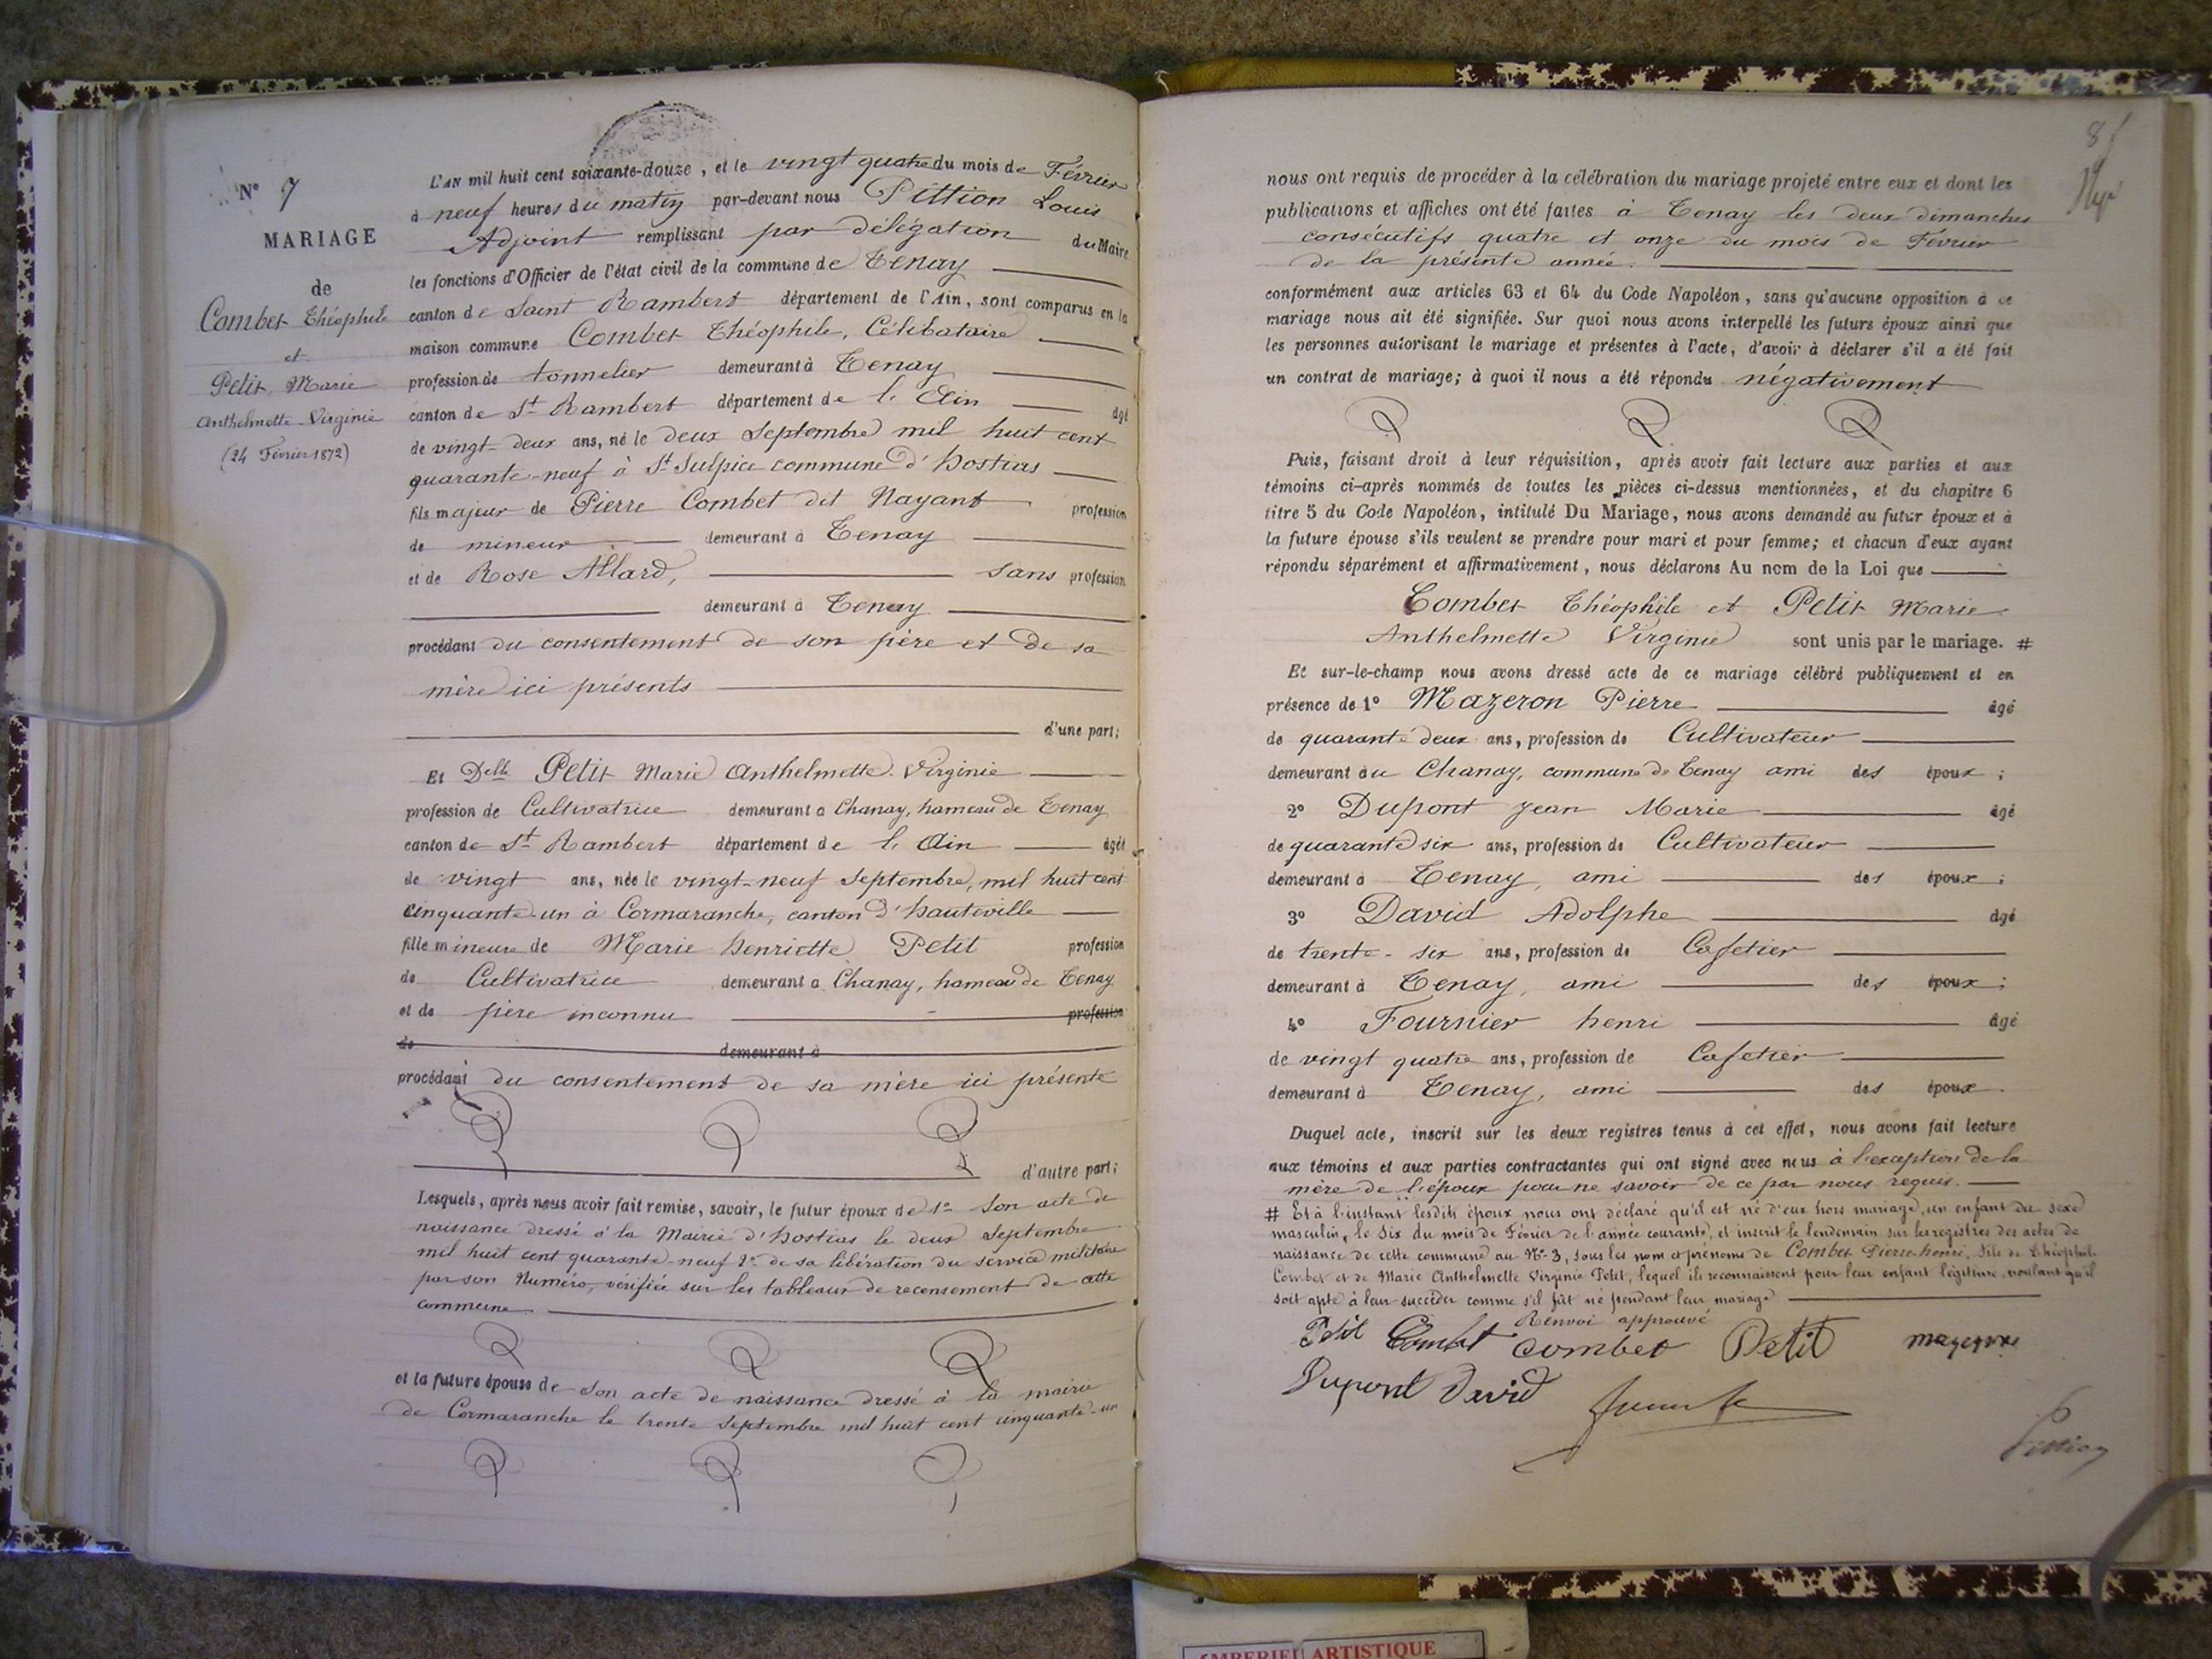 N° 7
MARIAGE
de
Combet Théophile
et
Petit, Marie
Anthelmette Virginie
(24 Février 1872)
L'AN mil huit cent soixante-douze, et le vingt quatre du mois de Février
à neuf heures du matin par-devant nous Pittion Louis
Adjoint remplissant par délégation du Maire
les fonctions d'Officier de l'état civil de la commune de Tenay
canton de Saint Rambert département de l'Ain, sont comparus en la
maison commune Combet Théophile, Célibataire
profession de tonnelier demeurant à Tenay
canton de St Rambert département de l'Ain âgé
de vingt-deux ans, né le deux Septembre mil huit cent
quarante-neuf à St Sulpice commune d'hostias
fils majeur de Pierre Combet dit Nayant profession
de mineur demeurant à Tenay
et de Rose Allard, sans profession
demeurant à Tenay
procédant du consentement de son père et de sa
mère ici présents
d'une part;
Et Delle Petit Marie Anthelmette Virginie
profession de Cultivatrice demeurant à Chanay, hameau de Tenay
canton de St Rambert département de l'Ain âgée
de vingt ans, née le vingt-neuf Septembre, mil huit cent
cinquante-un à Cormaranche, canton d'hauteville
fille mineure de Marie henriette Petit profession
de Cultivatrice demeurant à Chanay, hameau de Tenay
et de père inconnu profession
de demeurant à
procédant du consentement de sa mère ici présente
d'autre part;
Lesquels, après nous avoir fait remise, savoir, le futur époux de 1° Son acte de
naissance dressé à la Mairie d'hostias le deux Septembre
mil huit cent quarante-neuf 2° de sa libération du service militaire
par son Numéro, vérifiée sur les tableaux de recensement de cette
commune
et la future épouse de son acte de naissance dressé à la mairie
de Cormaranche le trente Septembre mil huit cent cinquante-un
nous ont requis de procéder à la célébration du mariage projeté entre eux et dont les
publications et affiches ont été faites à Tenay les deux dimanches
consécutifs quatre et onze du mois de Février
de la présente année.
conformément aux articles 63 et 64 du Code Napoléon, sans qu'aucune opposition à ce
mariage nous ait été signifiée. Sur quoi nous avons interpellé les futurs époux ainsi que
les personnes autorisant le mariage et présentes à l'acte, d'avoir à déclarer s'il a été fait
un contrat de mariage; à quoi il nous a été répondu négativement
Puis, faisant droit à leur réquisition, après avoir fait lecture aux parties et aux
témoins ci-après nommés de toutes les pièces ci-dessus mentionnées, et du chapitre 6
titre 5 du Code Napoléon, intitulé Du Mariage, nous avons demandé au futur époux et à
la future épouse s'ils veulent se prendre pour mari et pour femme; et chacun d'eux ayant
répondu séparément et affirmativement, nous déclarons Au nom de la Loi que
Combet Théophile et Petit Marie
Anthelmette Virginie sont unis par le mariage. #
Et sur-le-champ nous avons dressé acte de ce mariage célébré publiquement et en
présence de 1° Mazeron Pierre âgé
de quarante deux ans, profession de Cultivateur
demeurant au Chanay, commune de Tenay ami des époux;
2° Dupont Jean Marie âgé
de quarante six ans, profession de Cultivateur
demeurant à Tenay, ami des époux;
3° David Adolphe âgé
de trente-six ans, profession de Cafetier
demeurant à Tenay, ami des époux;
4° Fournier henri âgé
de vingt quatre ans, profession de Cafetier
demeurant à Tenay, ami des époux.
Duquel acte, inscrit sur les deux registres tenus à cet effet, nous avons fait lecture
aux témoins et aux parties contractantes qui ont signé avec nous à l'exception de la
mère de l'époux pour ne savoir de ce par nous requis.
# Et à l'instant lesdits époux nous ont déclaré qu'il est né d'eux hors mariage, un enfant du sexe
masculin, le Six du mois de Février de l'année courante, et inscrit le lendemain sur les registres des actes de
naissance de cette commune au N° 3, sous les nom et prénoms de Combet Pierre-henri, fils de Théophile
Combet et de Marie Anthelmette Virginie Petit, lequel ils reconnaissent pour leur enfant légitime, voulant qu'il
soit apte à leur succéder comme s'il fût né pendant leur mariage
Renvoi approuvé
Petit Combet Combet Petit mazeron
Dupont David
Pittion
AMBERIEU ARTISTIQUE